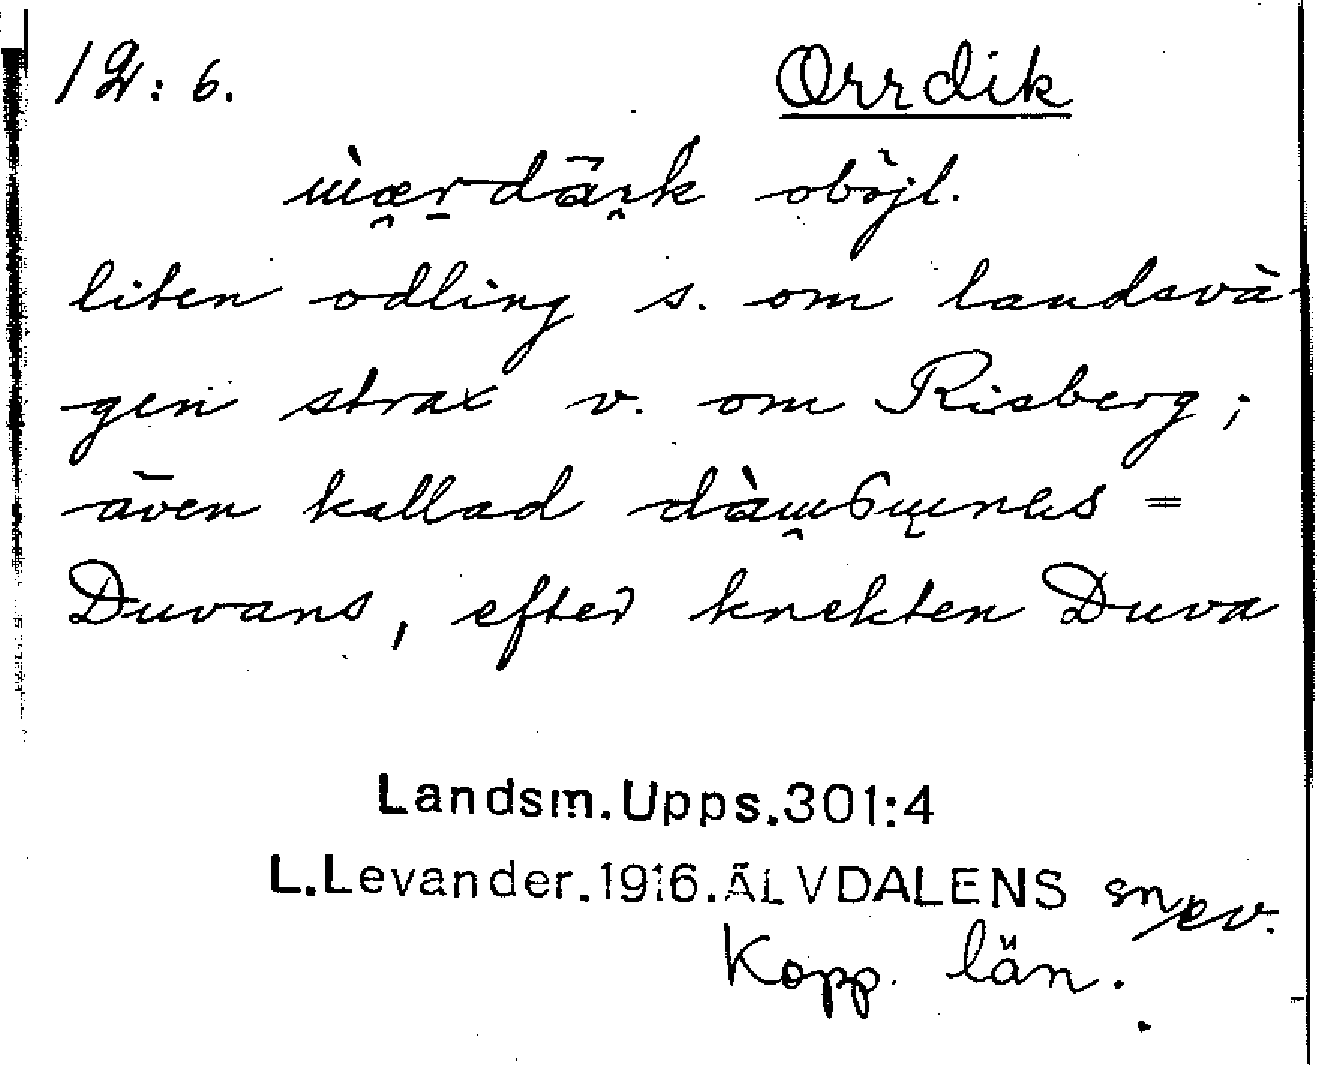 12: 6.
Orrdik
oböjl.
liten odling s. om landsvä-
gen strax v. om Risberg;
även kallad =
Duvans, efter knekten Duva
Landsm.Upps.301:4
L.Levander.1916.ÄLVDALENS sn
Kopp. län.